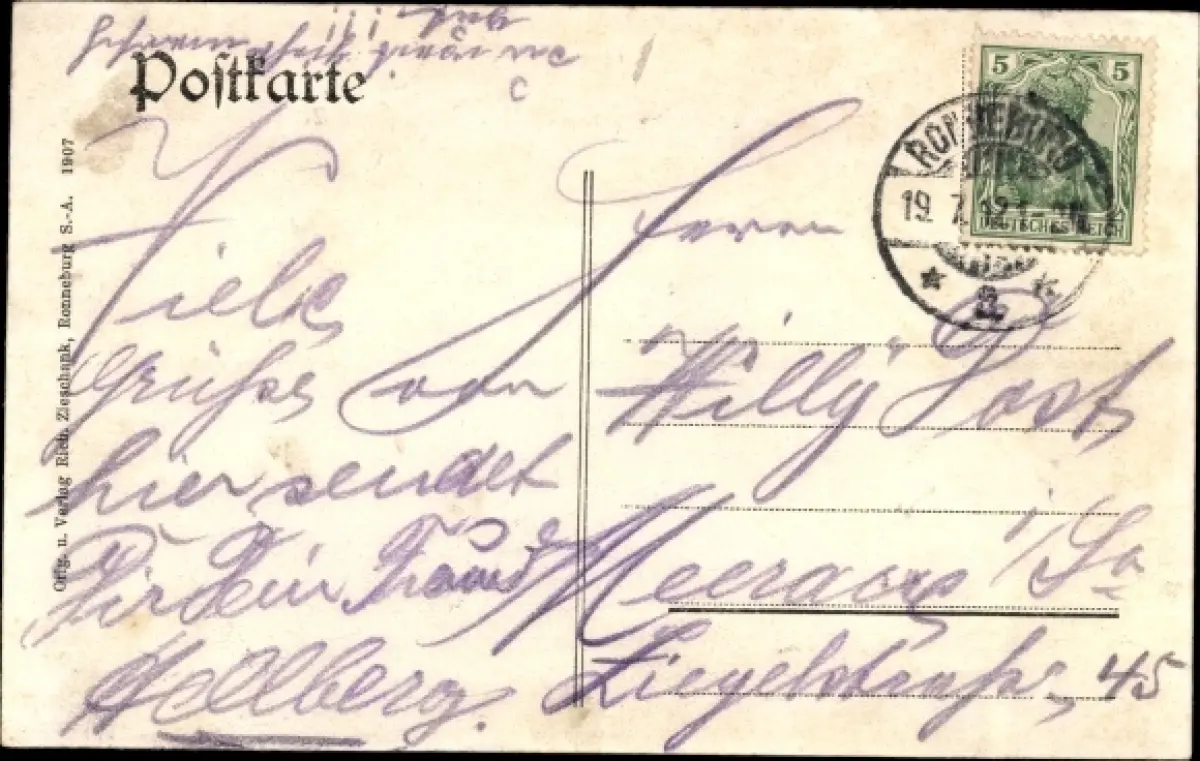 Postkarte
Viele
Grüße von
hier sendet
Dir Dein Freund
Herrn
Willy Jost
Meerane i/Sa
Ziegelstraße 45
5 5
DEUTSCHES REICH
RONNEBURG
19. 7.
Orig. u. Verlag Rich. Zieschank, Ronneburg S.-A. 1907